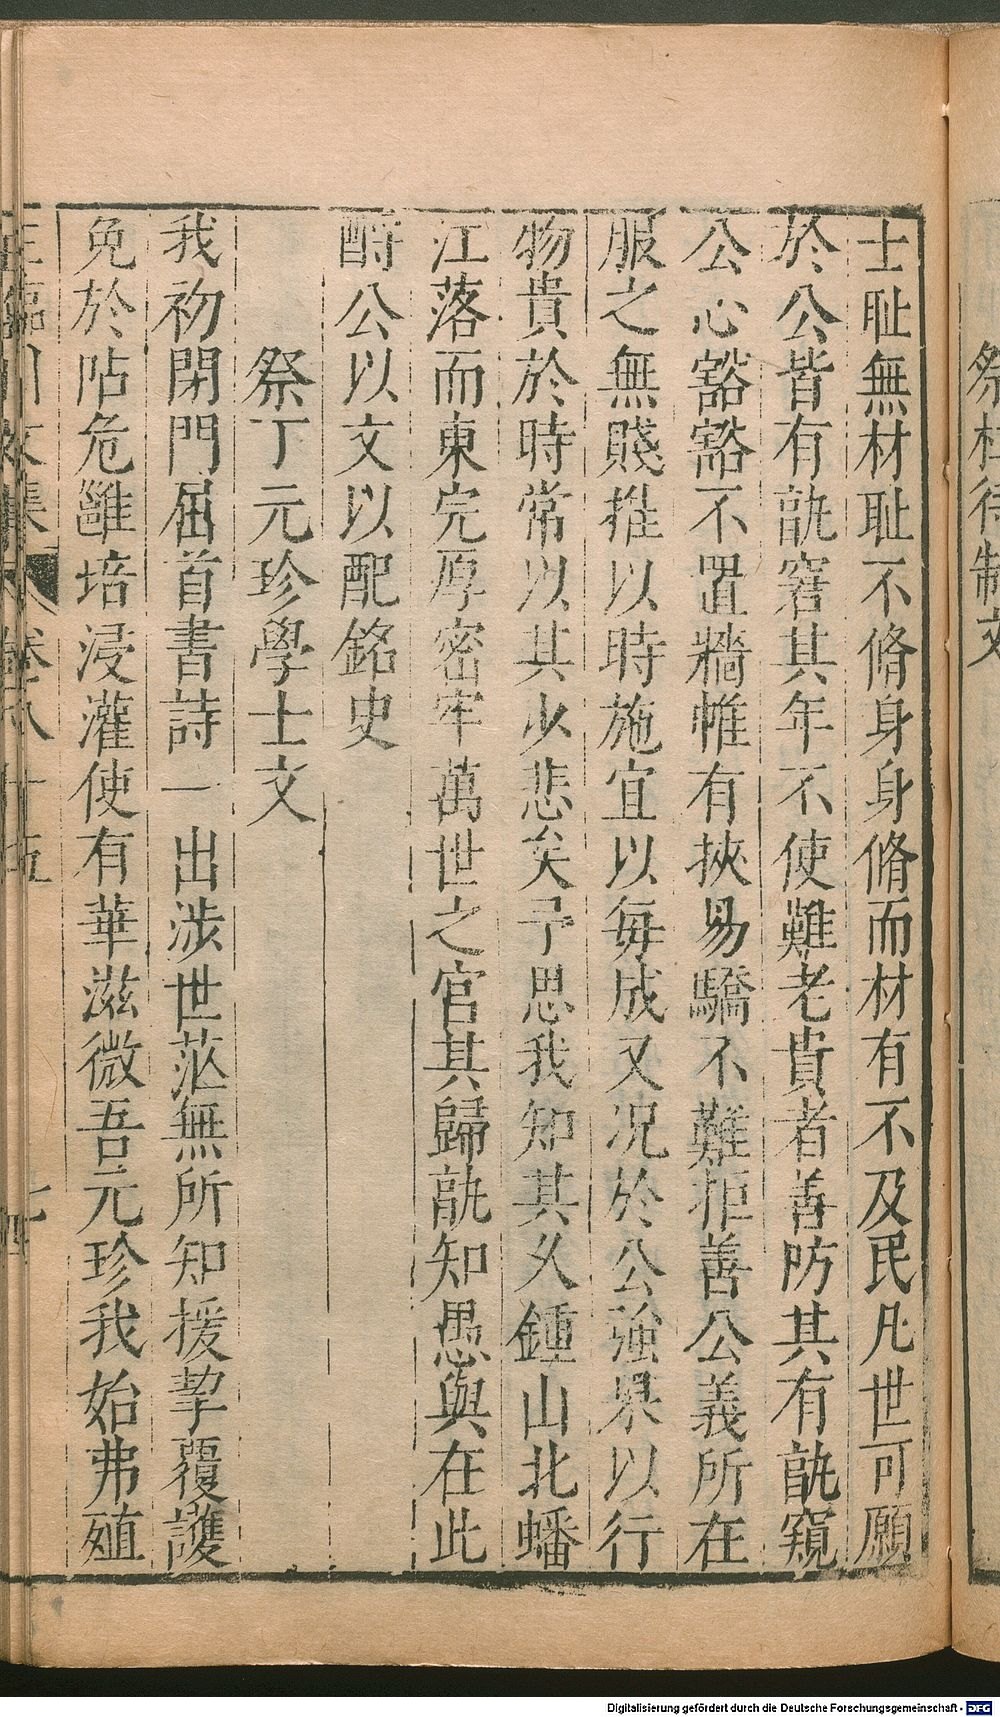 祭杜待制文
士耻無材耻不脩身身脩而材有不及民凡世可願
於公皆有孰窘其年不使難老貴者善防其有孰窺
公心豁豁不置牆帷有挾易驕不難拒善公義所在
服之無賤推以時施宜以每成又况於公強果以行
物貴於時常以其少悲矣予思我知其久鍾山北蟠
江落而東完厚密牢萬世之官其歸孰知愚與在此
酹公以文以配銘史
祭丁元珍學士文
我初閉門屈首書詩一出涉世茫無所知援挈覆護
免於阽危雝培浸灌使有華滋微吾元珍我始弗殖
王臨川文集 卷八十五
Digitalisierung gefördert durch die Deutsche Forschungsgemeinschaft - DFG